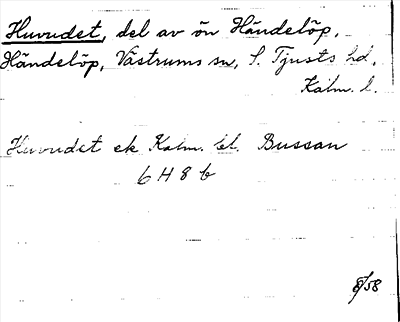 Huvudet, del av ön Händelöp,
Händelöp, Västrums sn, S. Tjusts hd,
Kalm. l.
Huvudet ek Kalm. bl. Bussan
6 H 8 b
8/58